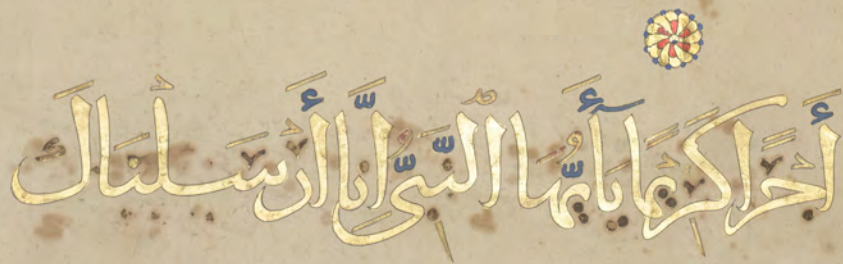 أَجْرًا كَرِيمًا يَٰأَيُّهَا ٱلنَّبِيُّ إِنَّا أَرْسَلْنَاكَ